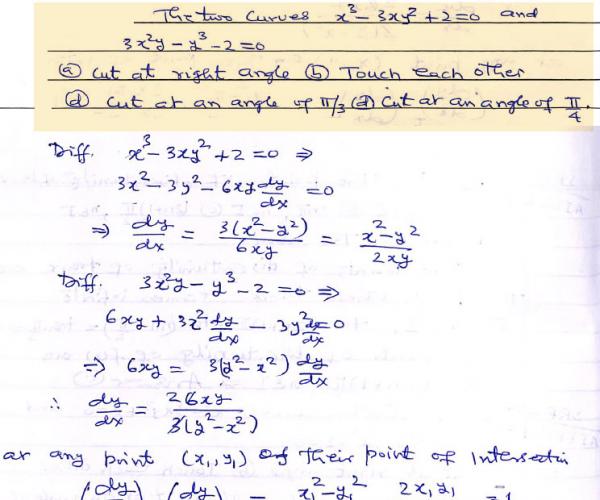 The two curves x³ - 3xy² + 2 = 0 and
3x²y - y³ - 2 = 0
(a) cut at right angle (b) Touch each other
(d) cut at an angle of π/3 (d) cut at an angle of π/4.
Diff. x³ - 3xy² + 2 = 0 ⇒
3x² - 3y² - 6xy dy/dx = 0
⇒ dy/dx = 3(x² - y²)/6xy = x² - y²/2xy
Diff. 3x²y - y³ - 2 = 0 ⇒
6xy + 3x² dy/dx - 3y² dy/dx = 0
⇒ 6xy = 3(y² - x²) dy/dx
∴ dy/dx = 26xy/3(y² - x²)
at any point (x₁, y₁) of Their point of Intersectin
(dy/dx) (dy/dx) = x₁² - y₁² 2x₁y₁